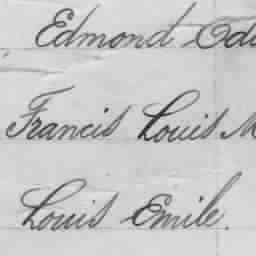 Edmond
Francis Louis
Louis Emile.